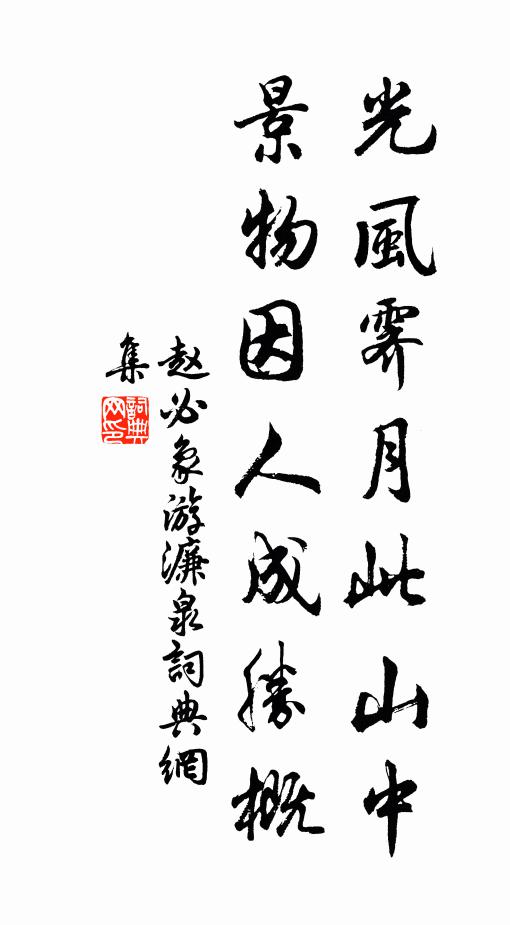 光風霽月此山中
景物因人成勝概
赵必象游濂泉詞典網
集
詞典
网印